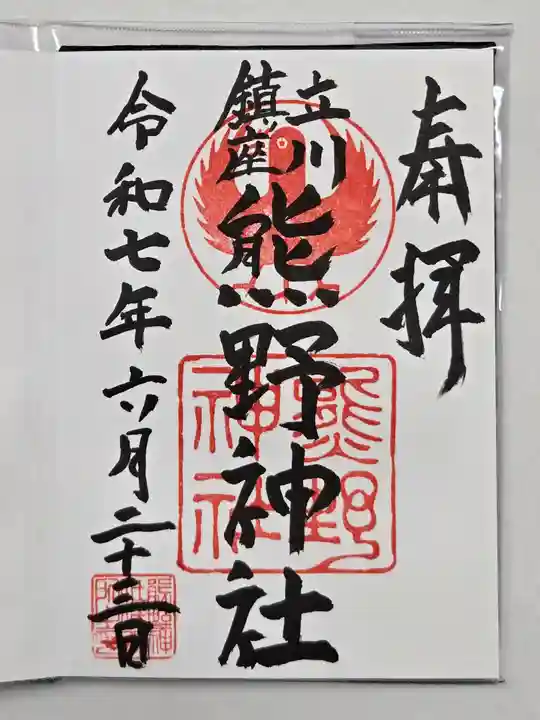 奉拝
立川
鎮座
熊野神社
令和七年六月二十三日
熊野
神社